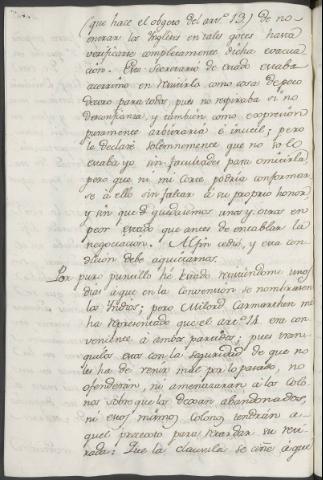 (que hace el objeto del art.º 13) de no
enerar los Yngleses en tales goces hasta
verificarse completamente dicha evacua
cion. Este Secretario de Estado estaba
acerrimo en reusirlo como cosa de poco
decoro para todos, pues no respiraba sino
desconfianza, y tambien como expresion
puramente arbitraria é inutil; pero
le declaré solemnemente que no solo
estaba yo sin facultades para omitirla
pero que ni mi corte podria conformar
se á ello sin faltar á su proprio honor
y sin que quedasemos unos y otros en
peor estado que antes de entablar la
negociacion. Al fin cedió, y esta con
dicion debe aquietarnos.
Por puro puntillo hé estado resistiendome unos
dias á que en la convencion se nombrasen
los Yndios; pero Milord Carmarthen me
ha representado que el art.º 14. era con
veniente á ambos partidos; pues tran
quilos esos con la seguridad de que no
les ha de venir mal por lo pasado, no
ofenderán, ni amenazarán á los Colo
nos sobre que los dexan abandonados,
ni estos mismos Colonos tendrán a
quel pretexto para retardar su reti
rada: Que la clausula se ciñe á que